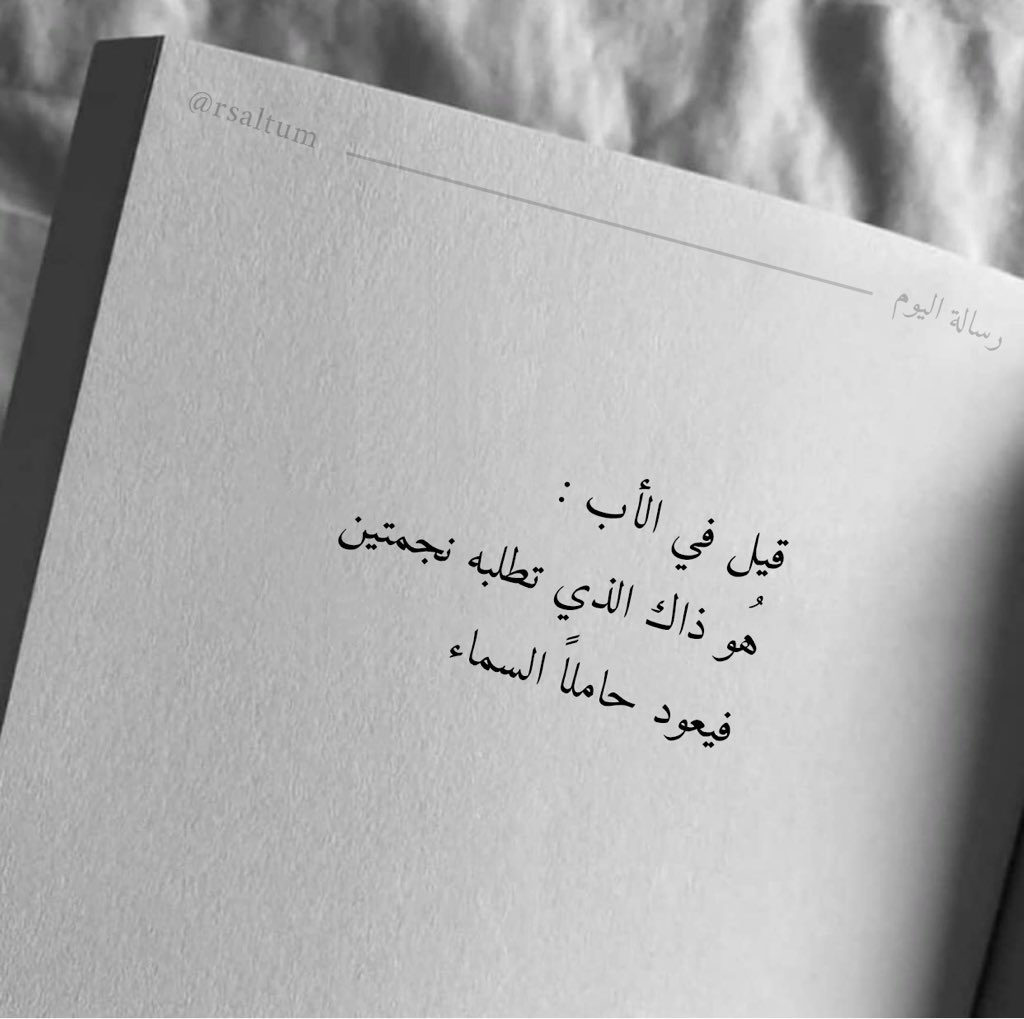 @rsaltum
رسالة اليوم
قيل في الأب :
هُو ذاك الذي تطلبه نجمتين
فيعود حاملاً السماء